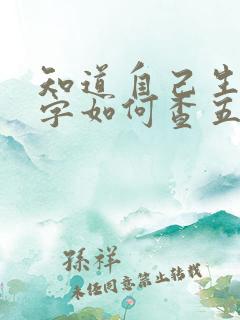 知道自己生
字如何查五
孫祥
未经同意禁止转载